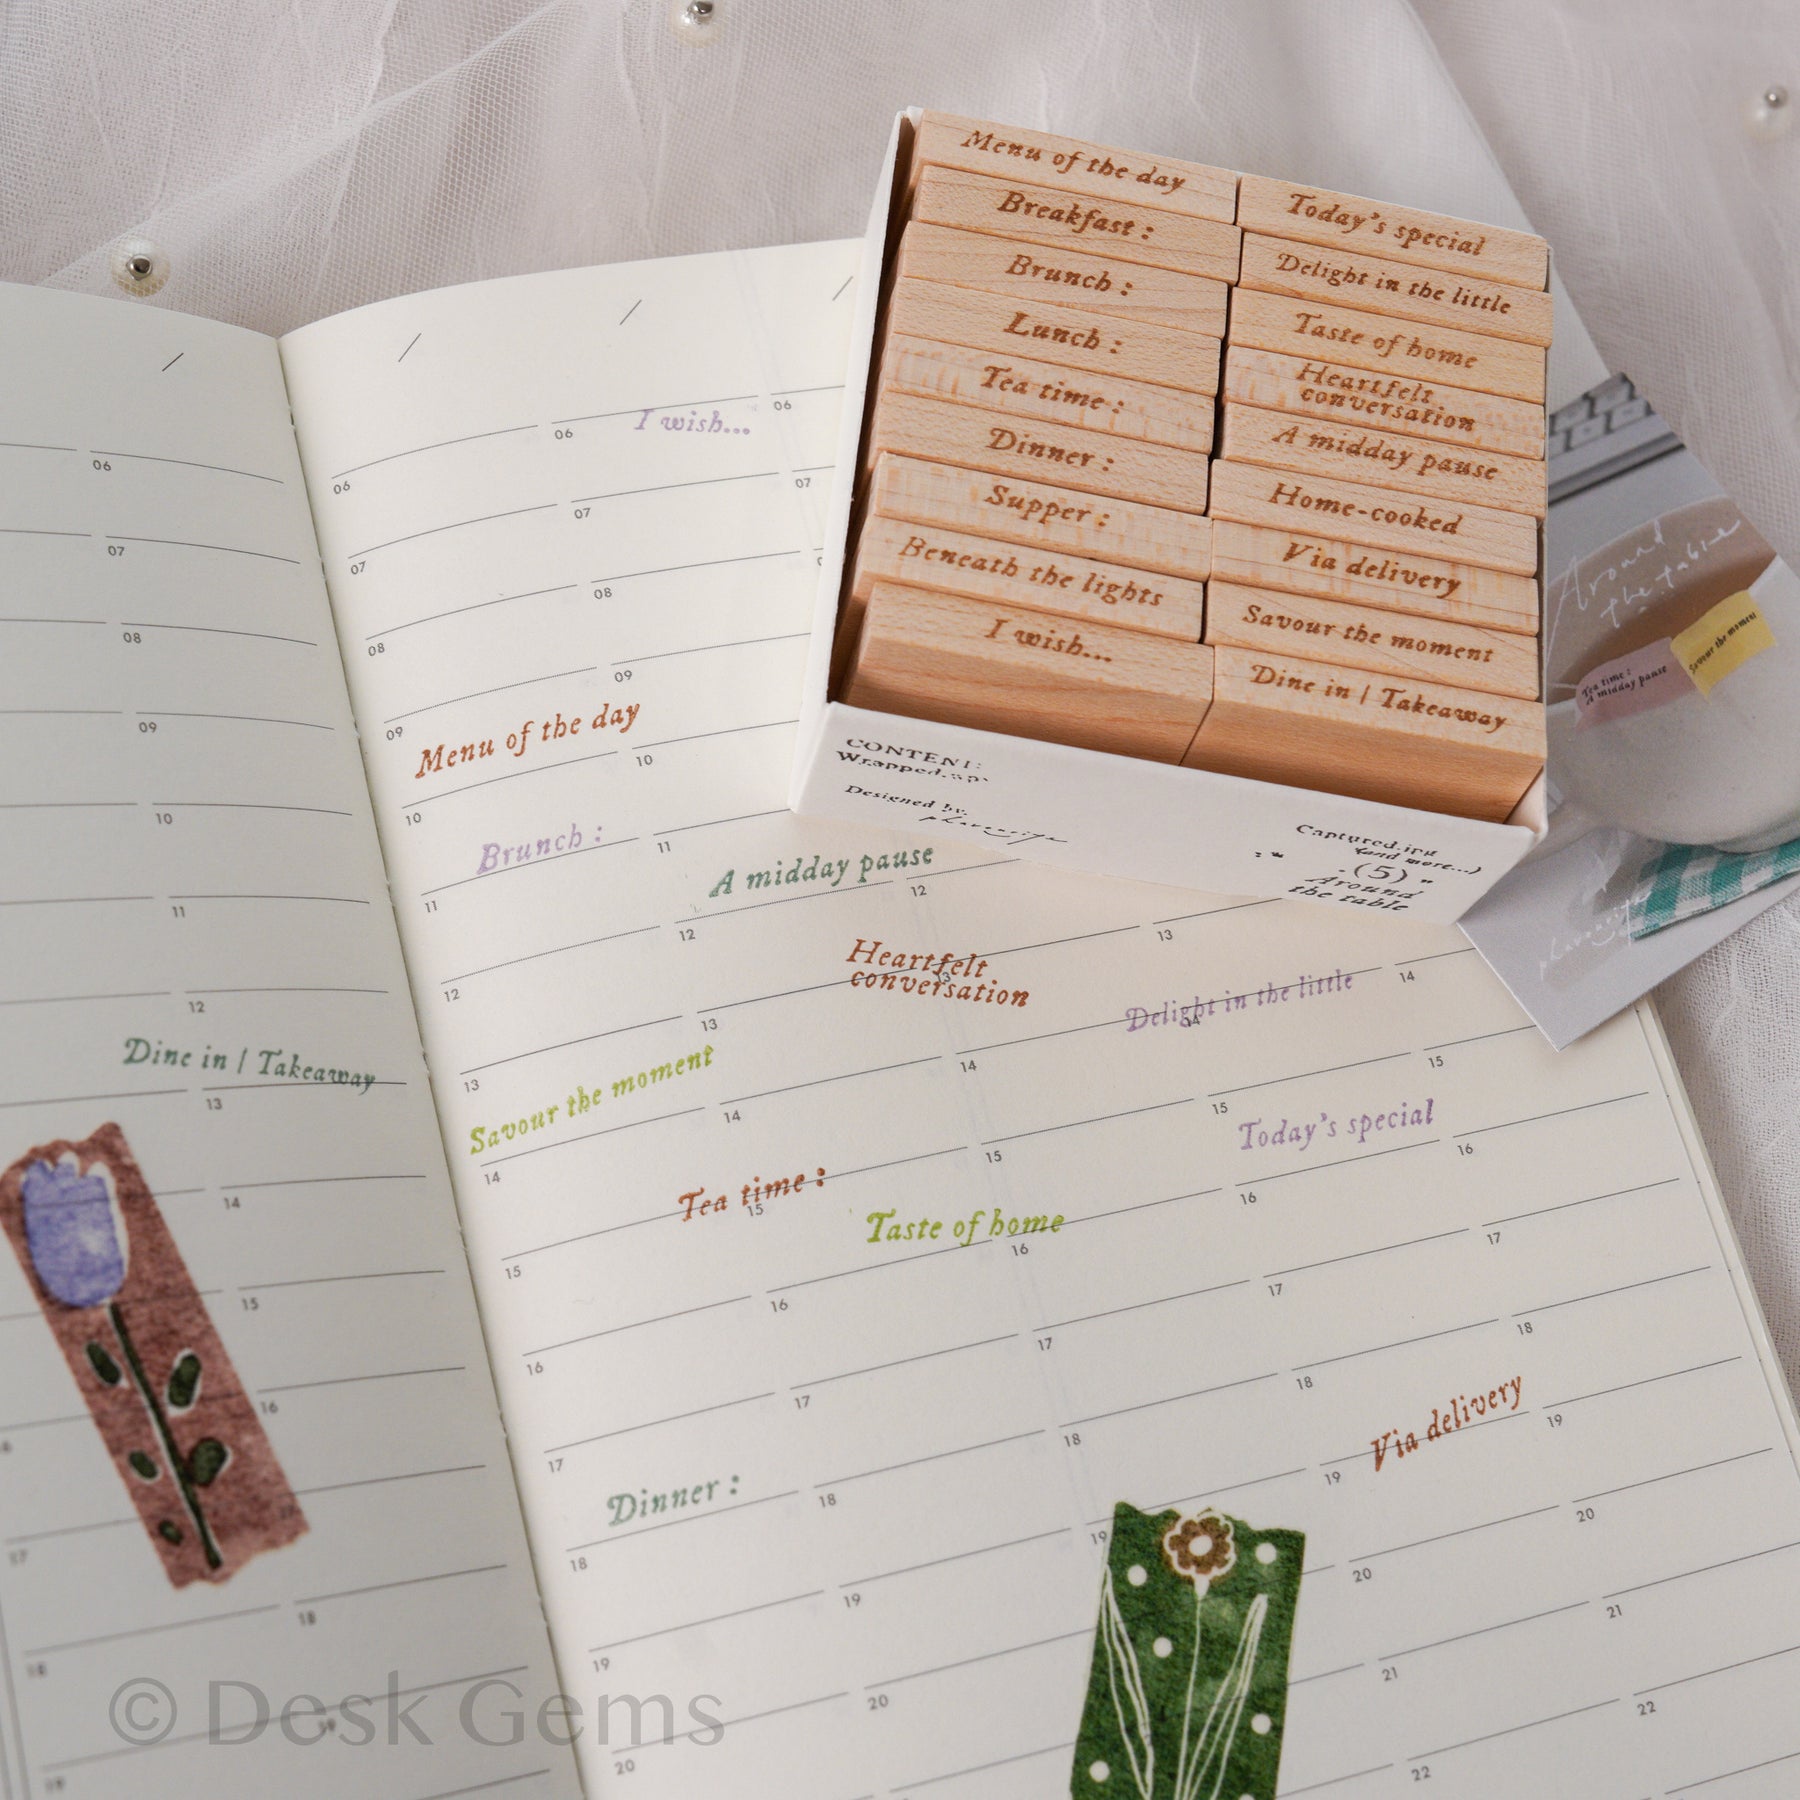 Menu of the day
Breakfast :
Brunch :
Lunch :
Tea time :
Dinner :
Supper :
Beneath the lights
I wish...
Today's special
Delight in the little
Taste of home
Heartfelt
conversation
A midday pause
Home-cooked
Via delivery
Savour the moment
Dine in | Takeaway
CONTENT:
Designed by.
(and more...)
(5)
Around
the table
Around
the table
Tea time :
A midday pause
Savour the moment
06
07
08
09
10
11
12
Dine in | Takeaway
13
14
15
16
17
18
18
19
19
I wish...
06
06
06
07
07
07
08
08
09
09
Menu of the day
10
10
Brunch :
11
11
A midday pause
12
12
12
Heartfelt
conversation
13
13
13
13
Delight in the little
14
14
14
14
14
Savour the moment
15
15
15
15
15
Tea time :
Today's special
Taste of home
16
16
16
16
16
17
17
17
17
17
18
18
18
18
18
Dinner :
Via delivery
19
19
19
19
19
20
20
20
20
21
21
22
22
© Desk Gems